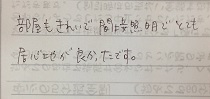 部屋もきれいで間接照明でとても
居心地が良かったです。